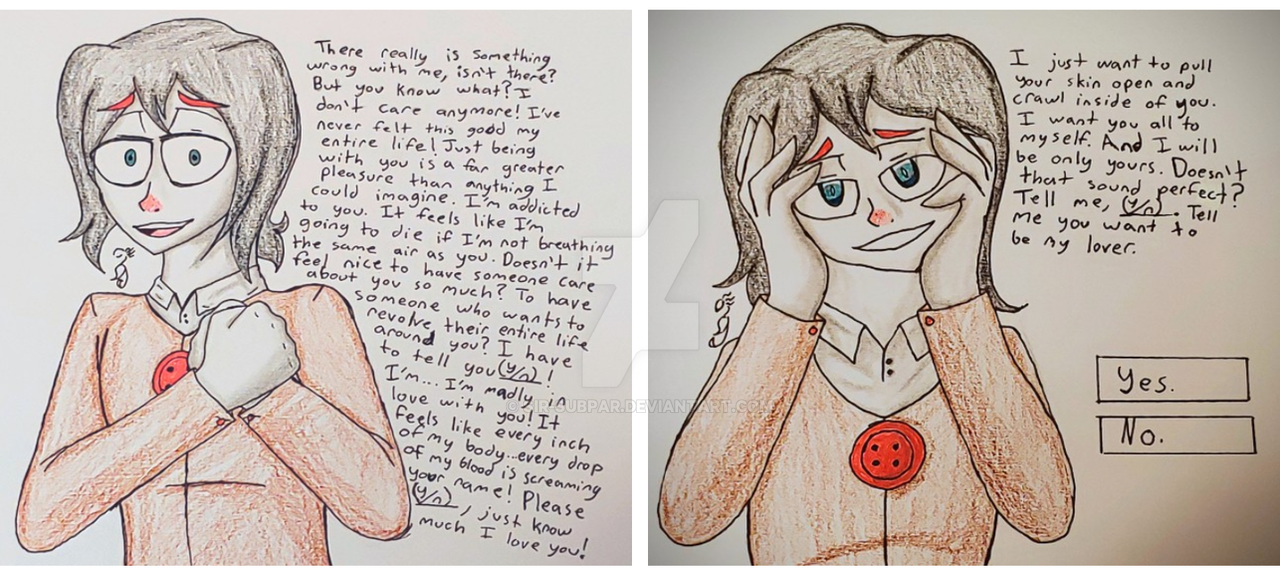 There really is something
wrong with me, isn't there?
But you know what? I
don't care anymore! I've
never felt this good my
entire life! Just being
with you is a far greater
pleasure than anything I
could imagine. I'm addicted
to you. It feels like I'm
going to die if I'm not breathing
the same air as you. Doesn't it
feel nice to have someone care
about you so much? To have
someone who wants to
revolve their entire life
around you? I have
to tell you (y/n)!
I'm... I'm madly in
love with you! It
feels like every inch
of my body...every drop
of my blood is screaming
your name! Please
(y/n), just know
much I love you!
I just want to pull
your skin open and
crawl inside of you.
I want you all to
myself. And I will
be only yours. Doesn't
that sound perfect?
Tell me, (y/n). Tell
me you want to
be my lover.
Yes.
No.